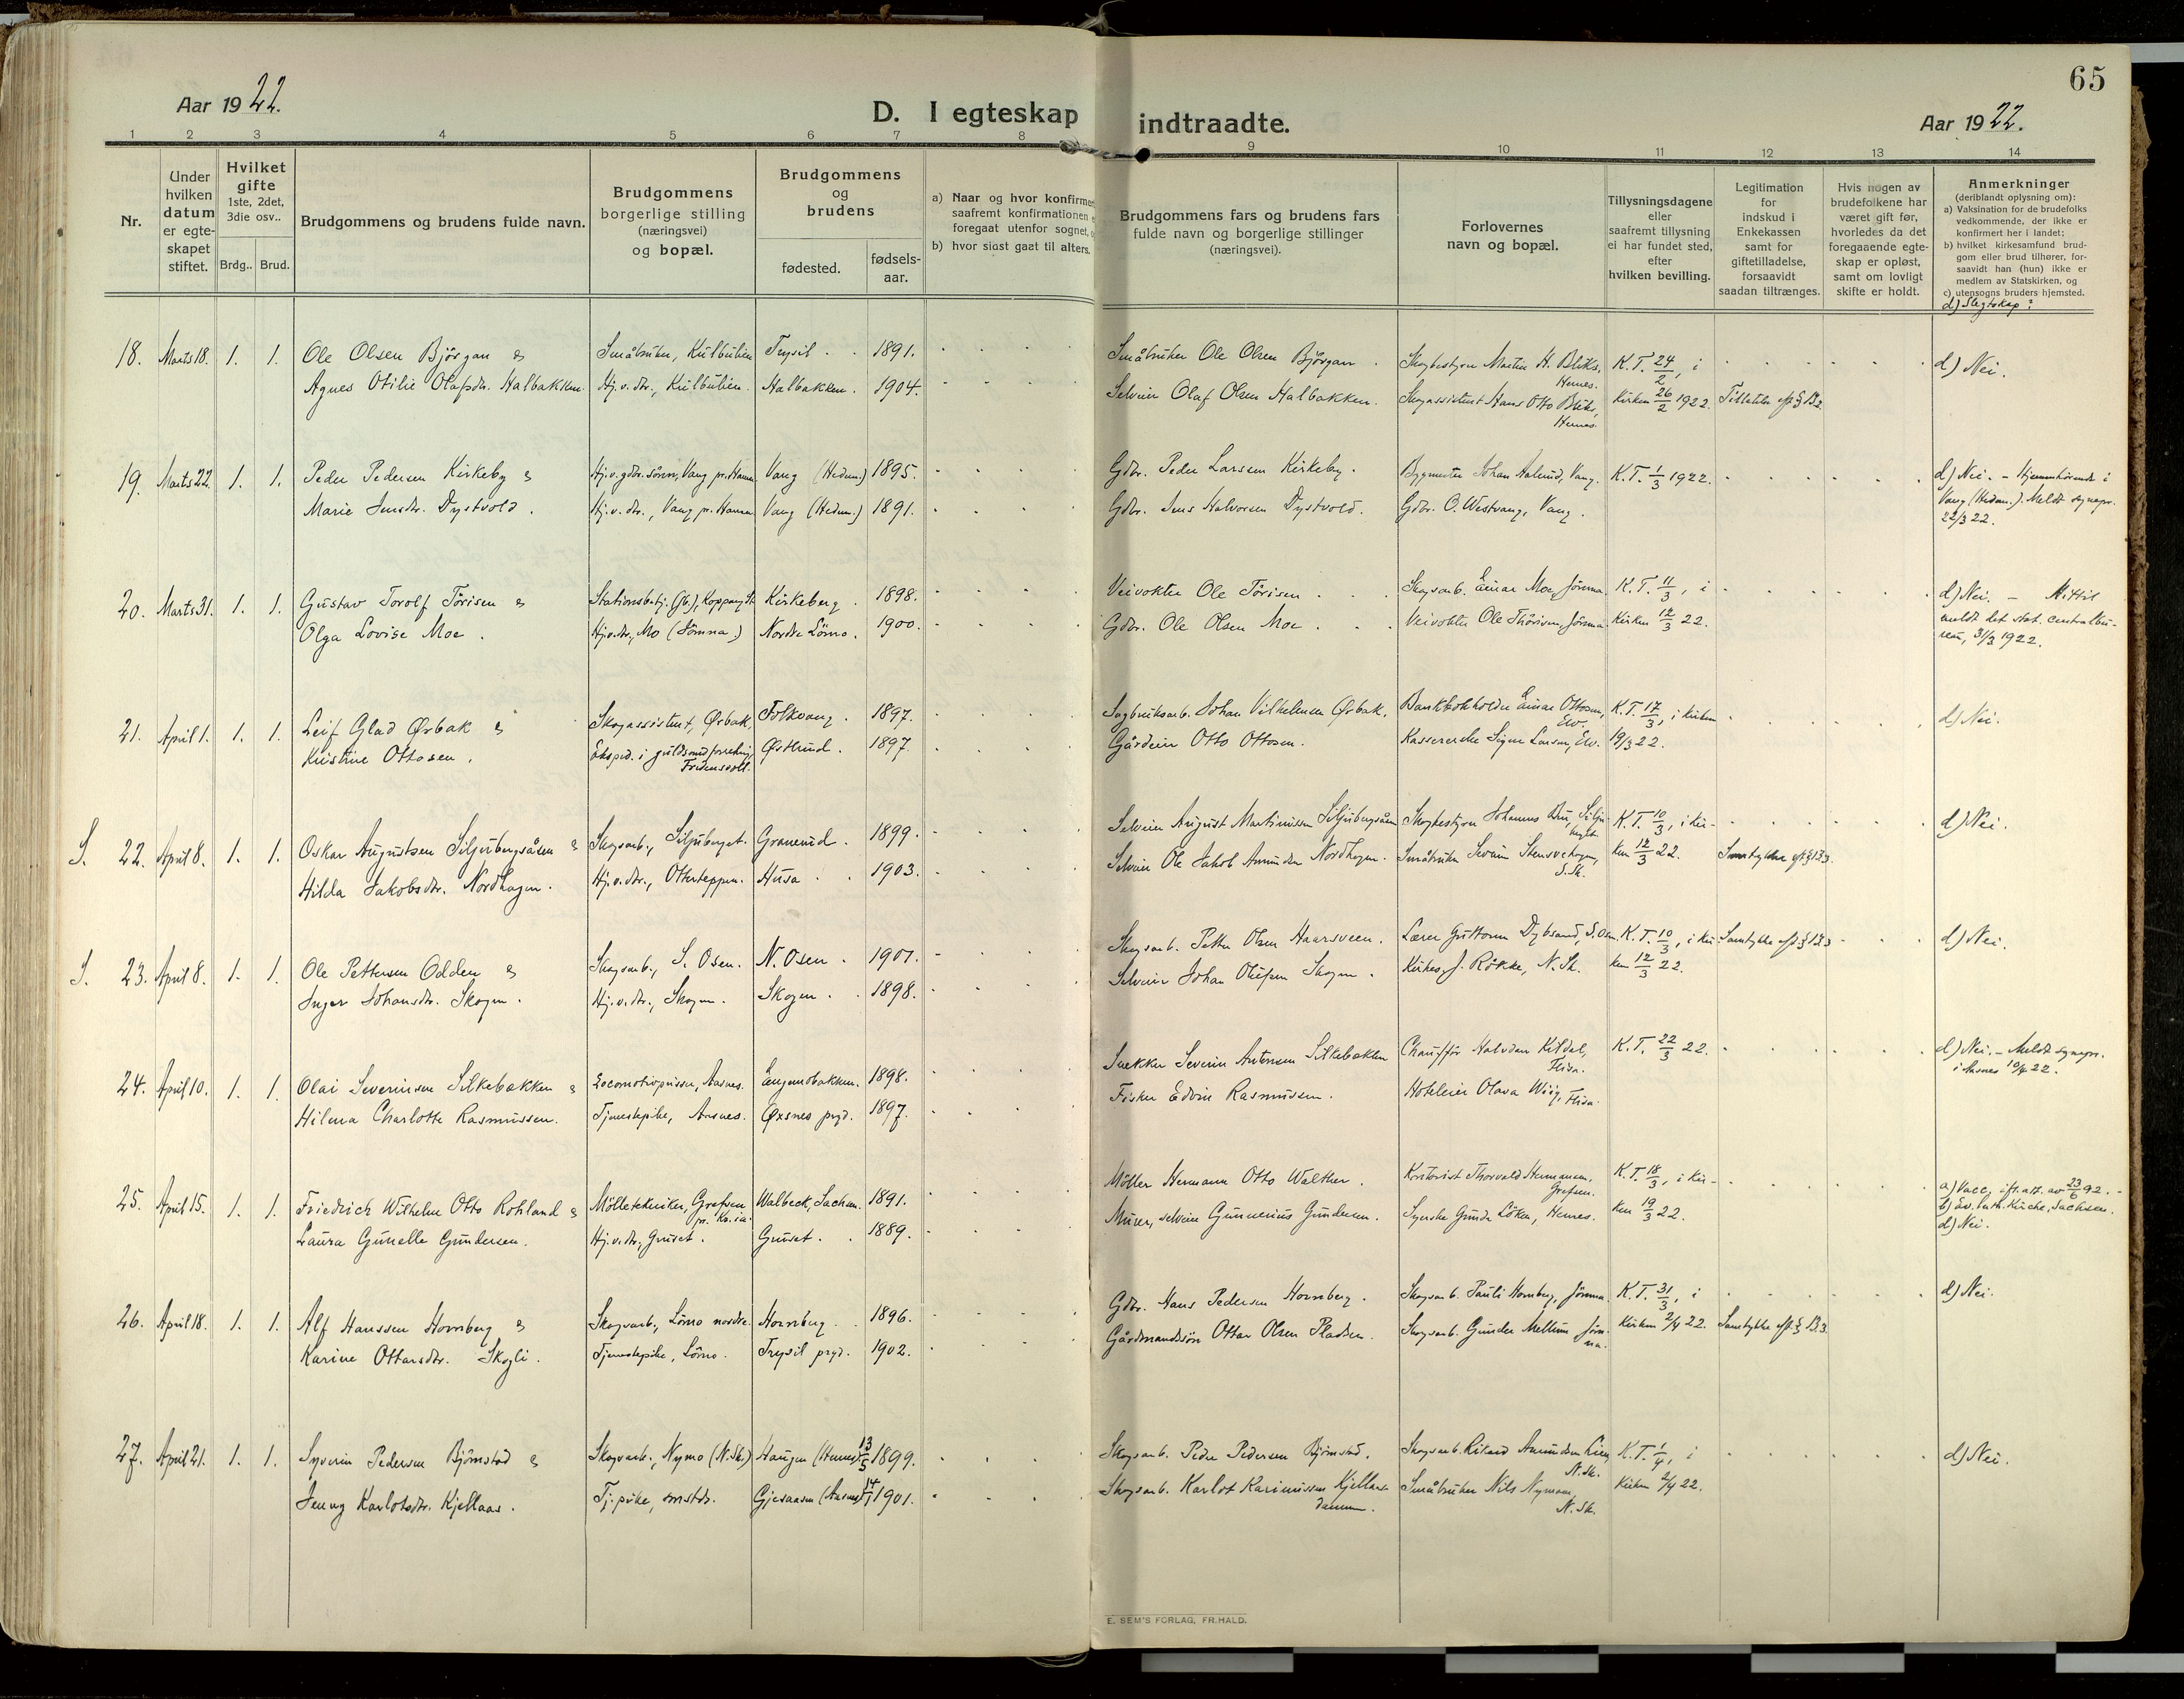 65
Aar 1922.
D. I egteskap indtraadte.
Aar 1922.
1 2 3 4 5 6 7 8 9 10 11 12 13 14
Nr.
Under
hvilken
datum
er egte-
skapet
stiftet.
Hvilket
gifte
1ste, 2det,
3die osv..
Brdg.. Brud.
Brudgommens og brudens fulde navn.
Brudgommens
borgerlige stilling
(næringsvei)
og bopæl.
Brudgommens
og
brudens
fødested.
fødsels-
aar.
a) Naar og hvor konfirmert
saafremt konfirmationen
foregaat utenfor sognet,
b) hvor sidst gaat til alters.
Brudgommens fars og brudens fars
fulde navn og borgerlige stillinger
(næringsvei).
Forlovernes
navn og bopæl.
Tillysningsdagene
eller
saafremt tillysning
ei har fundet sted,
efter
hvilken bevilling.
Legitimation
for
indskud i
Enkekassen
samt for
giftetilladelse,
forsaavidt
saadan tiltrænges.
Hvis nogen av
brudefolkene har
været gift før,
hvorledes da det
foregaaende egte-
skap er opløst,
samt om lovligt
skifte er holdt.
Anmerkninger
(deriblandt oplysning om):
a) Vaksination for de brudefolks
vedkommende, der ikke er
konfirmert her i landet;
b) hvilket kirkesamfund brud-
gom eller brud tilhører, for-
saavidt han (hun) ikke er
medlem av Statskirken, og
c) utensogns bruders hjemsted.
d) Slegtskap?
18. Marts 18. 1. 1. Ole Olsen Bjørgan & Småbruker, Kulbulien Trysil 1891. Småbruker Ole Olsen Bjørgan. Skogbestyrer Martin H. Bliks, Hernes. K.T. 24/2, i d) Nei.
Agnes Otilie Olafsdr. Halbakken. Hj.v. dtr., Kulbulien. Halbakken. 1904. Selveier Olaf Olsen Halbakken. Skogassistent Hans Otto Bliks, Hernes. Kirken 26/2 1922. Tilladelse eft. § 13.2
19. Marts 22. 1. 1. Peder Pedersen Kirkeby & Hj.v. gdbr. sønn, Vang pr. Hamar Vang (Hedm.) 1895. Gdbr. Peder Larsen Kirkeby. Bygmester Johan Aalund, Vang. K.T. 1/3 1922. d) Nei. - Hjemmhørende i
Marie Jensdr. Dystvold. Hj.v. dtr., Vang pr. Hamar Vang (Hedm.) 1891. Gdbr. Jens Halvorsen Dystvold. Gdbr. O. Westvang, Vang. Vang (Hedm.). Meldt sognepr.
22/3 22.
20. Marts 31. 1. 1. Gustav Torolf Törisen & Stationsbetj. (Jb.), Koppang St. Kirkeberg. 1898. Veivokter Ole Törisen. Skogsarb. Einar Moe, Jömna. K.T. 11/3, i d) Nei. - Hittil
Olga Lovise Moe. Hj.v.dtr, Mo (Jömna.) Nordre Lömo. 1900. Gdbr. Ole Olsen Moe. Veivokter Ole Thörisen, Jömna. Kirken 12/3 22. meldt det stat. centralbu-
reau, 31/3 1922.
21. April 1. 1. 1. Leif Glad Ørbak & Skogassistent, Ørbak, Folkvang. 1897. Sagbruksarb. Johan Vilhelmsen Ørbak. Bankbokholder Einar Ottosen, Elv. K.T. 17/3, i kirken d) Nei.
Kristine Ottosen. Eksped. i guldsmedforretning, Fredensvoll. Østlund. 1897. Gårdeier Otto Ottosen. Kassererske Signe Larsen, Elv. 19/3 22.
S. 22. April 8. 1. 1. Oskar Augustsen Siljubergsåsen & Skogsarb., Siljuberget. Graneud. 1899. Selveier August Martinisen Siljubergsåsen Skogbestyrer Johannes Bru, Silju- K.T. 10/3, i kir- d) Nei.
Hilda Jakobsdr. Nordhagen. Hj.v. dtr., Otterteppen. Husa 1903. Selveier Ole Jakob Amundsen Nordhagen. Småbruker S.Sk. ken 12/3 22. Samtykke eft. § 13.3.
S. 23. April 8. 1. 1. Ole Pettersen Odden & Skogsarb., S. Osen. N. Osen. 1901. Skogsarb. Petter Olsen Haarsveen. Lærer Guttorm Dybsand, S. Osen. K.T. 10/3, i kir- Samtykke eft. § 13.3 d) Nei.
Inger Johansdr. Skogen. Hj.v. dtr., Skogen. Skogen. 1898. Selveier Johan Olufsen Skogen. Kirkes. J. Røkke, N. Sk. ken 12/3 22.
24. April 10. 1. 1. Olai Severinsen Silkebækken & Locomotivpusser, Aasnes. Engemobakken. 1898. Snekker Severin Antonsen Silkebækken Chauffør Halvdan Kildal, Flisa. K.T. 22/3 22. d) Nei. - Meldt sognepr.
Hilma Charlotte Rasmussen. Tjenestepike, Aasnes. Øxsnes pgd. 1897. Fisker Edvin Rasmussen. Hoteleier Olava Wiig, Flisa. i Aasnes 10/4 22.
25. April 15. 1. 1. Friedrich Wilhelm Otto Rohland & Mölletekniker, Grefsen pr. Kr.ia. Walbeck, Sachsen. 1891. Möller Hermann Otto Walther. Kontorist Thorvald Hermansen, Grefsen. K.T. 18/3, i kir- a) Vacc. ifr. att. av 23/6 92. -
Laura Gunelle Gundersen. Hj.v.dtr, Grunset. Grunset. 1889. Murer, selveier Gunnerius Gundersen. Syerske Gunda Löken, Hernes. ken 19/3 22. b) Ev. luth. Kirche, Sachsen.
d) Nei.
26. April 18. 1. 1. Alf Hanssen Hornberg & Skogsarb., Lömo nordre. Hornberg. 1896. Gdbr. Hans Pedersen Hornberg. Skogsarb. Pauli Hornberg, Jömna. K.T. 31/3, i d) Nei.
Karine Ottarsdtr. Skogli. Tjenestepike, Lömo. Trysil pgd. 1902. Gårdmandssön Ottar Olsen Pladsen. Skogsarb. Gunder Mellem Jöm-na. Kirken 2/4 22. Samtykke eft. § 13.3.
27. April 21. 1. 1. Syverin Pedersen Björnstad & Skogsarb., Nymo (N.Sk.) Haugen (Hernes) 13/5 1899. Skogsarb. Peder Pedersen Björnstad. Skogsarb. Rikard Amundsen Lien, N.Sk. K.T. 1/4, i d) Nei.
Jenny Karlotsdtr. Kjellaas. Tj.pike, smstds. Gjesaasen (Aasnes) 14/1 1901. Skogsarb. Karlot Karinussen Kjellaas- Småbruker Nils Nymoen, N. Sk. Kirken 2/4 22.
E. SEM'S FORLAG, FR.HALD.